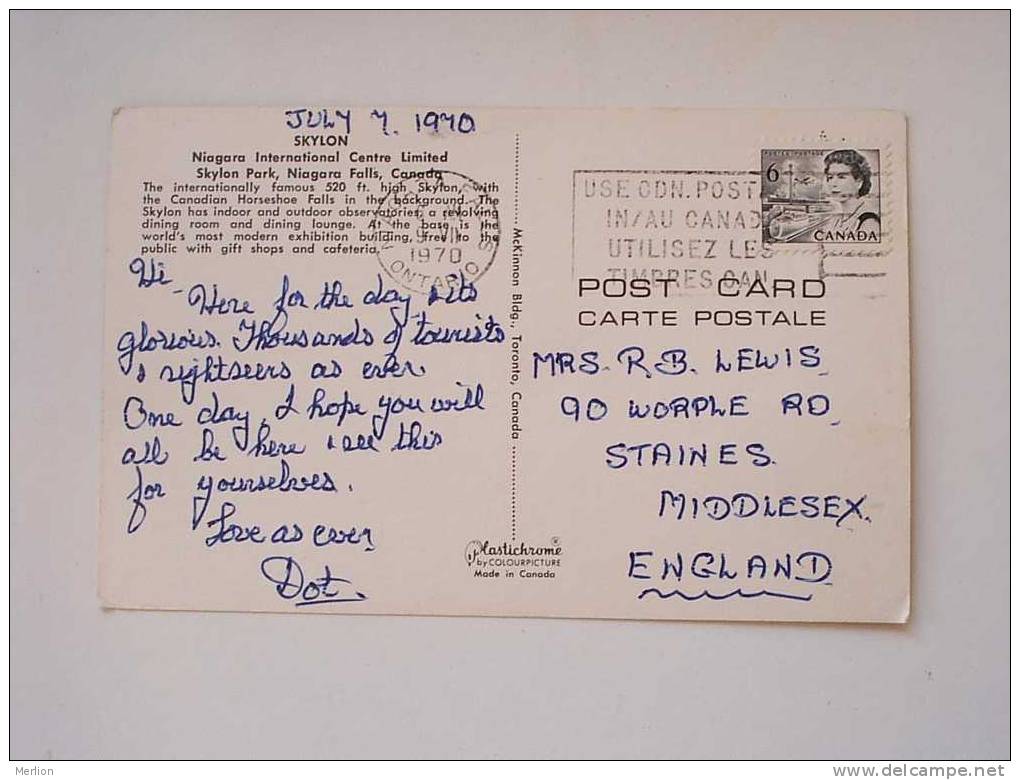 JULY 7. 1970
SKYLON
Niagara International Centre Limited
Skylon Park, Niagara Falls, Canada
The internationally famous 520 ft. high Skylon, with
the Canadian Horseshoe Falls in the background. The
Skylon has indoor and outdoor observatories, a revolving
dining room and dining lounge. At the base is the
world's most modern exhibition building, free to the
public with gift shops and cafeteria.
Hi
Here for the day & its
glorious. Thousands of tourists
& sightseers as ever.
One day, I hope you will
all be here & see this
for yourselves.
Love as ever
Dot.
1970
ONTARIO
McKinnon Bldg., Toronto, Canada
Plastichrome ®
by COLOURPICTURE
Made in Canada
USE CDN. POST
IN/AU CANAD
UTILISEZ LES
TIMBRES CAN
POSTES POSTAGE
6
CANADA
POST CARD
CARTE POSTALE
MRS. R.B. LEWIS
90 WORPLE RD
STAINES.
MIDDLESEX.
ENGLAND
Merlion
delcampe.net